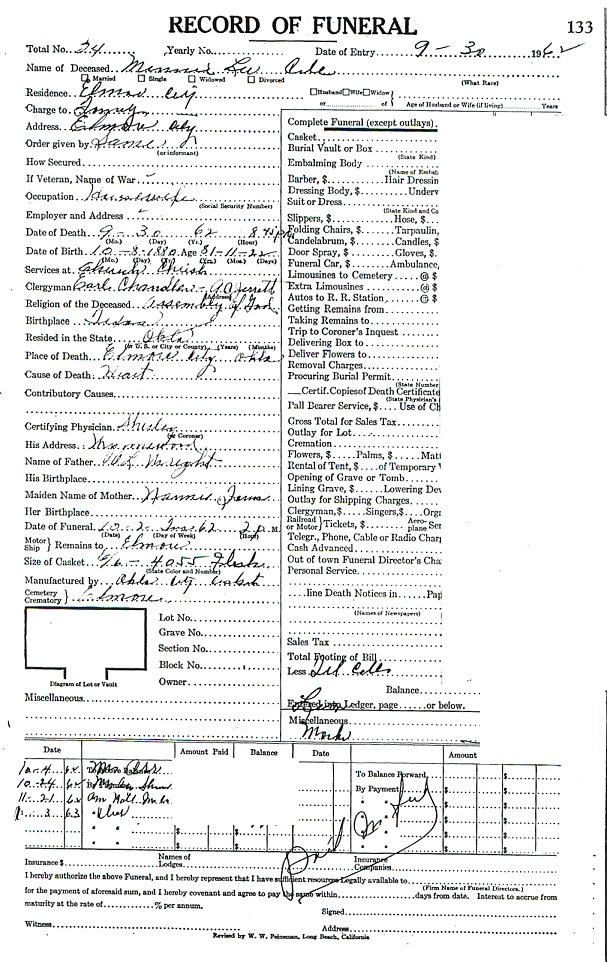 RECORD OF FUNERAL
133
Total No. 24 Yearly No. Date of Entry 9 - 30 1962
Name of Deceased Minnie Lee
Married Single Widowed Divorced (What Race)
Residence Elmore City Husband Wife Widow
or of Age of Husband or Wife (if living) Years
Charge to Family
Address Elmore City
Order given by Same
(or informant)
How Secured
If Veteran, Name of War -
Occupation Housewife
(Social Security Number)
Employer and Address -
Date of Death 9 - 30 62 8:45 P M
(Mo.) (Day) (Yr.) (Hour)
Date of Birth 10 - 8 - 1880 Age 81 - 11 - 22
(Mo.) (Day) (Yr.) (Yrs.) (Mos.) (Days)
Services at Church Christ
Clergyman Carl Chandler - A.O. Jerrett
(Address)
Religion of the Deceased Assembly of God
Birthplace Texas
Resided in the State Okla
(or U. S. or City or County) (Years) (Months)
Place of Death Elmore City Okla
Cause of Death Heart
Contributory Causes
Certifying Physician
(or Coroner)
His Address Wynnewood
Name of Father Wright
His Birthplace
Maiden Name of Mother
Her Birthplace
Date of Funeral 10 - 2 - Tues 62 2 P. M.
(Date) (Day of Week) (Hour)
Motor Ship Remains to Elmore
Size of Casket 9/6 - 4055
(State Color and Number)
Manufactured by Okla City Casket
Cemetery Crematory Elmore
Lot No.
Grave No.
Section No.
Block No.
Owner
Diagram of Lot or Vault
Miscellaneous
Complete Funeral (except outlays)
Casket
Burial Vault or Box
(State Kind)
Embalming Body
(Name of Embal
Barber, $ Hair Dressin
Dressing Body, $ Underv
Suit or Dress
(State Kind and Co
Slippers, $ Hose, $
Folding Chairs, $ Tarpaulin,
Candelabrum, $ Candles, $
Door Spray, $ Gloves, $
Funeral Car, $ Ambulance,
Limousines to Cemetery @ $
Extra Limousines @ $
Autos to R. R. Station @ $
Getting Remains from
Taking Remains to
Trip to Coroner's Inquest
Delivering Box to
Deliver Flowers to
Removal Charges
Procuring Burial Permit
(State Number
Certif. Copies of Death Certificate
(State Physician's
Pall Bearer Service, $ Use of Ch
Gross Total for Sales Tax
Outlay for Lot
Cremation
Flowers, $ Palms, $ Matt
Rental of Tent, $ of Temporary V
Opening of Grave or Tomb
Lining Grave, $ Lowering Dev
Outlay for Shipping Charges
Clergyman, $ Singers, $ Orga
Railroad or Motor Tickets, $ Aeroplane Ser
Telegr., Phone, Cable or Radio Charg
Cash Advanced
Out of town Funeral Director's Cha
Personal Service
line Death Notices in Pap
(Names of Newspapers)
Sales Tax
Total Footing of Bill
Less
Balance
Entered into Ledger, page or below.
Miscellaneous
Date Amount Paid Balance Date Amount
10 - 4 62 To Above Balance To Balance Forward
10 - 24 62 By By Payment
11 - 21 62 Am Natl Ins Co
1 - 3 63
Paid
Insurance $ Names of Lodges Insurance Companies
I hereby authorize the above Funeral, and I hereby represent that I have sufficient resources Legally available to
(Firm Name of Funeral Directors.)
for the payment of aforesaid sum, and I hereby covenant and agree to pay the same within days from date. Interest to accrue from
maturity at the rate of % per annum.
Signed
Witness Address
Revised by W. W. Peineman, Long Beach, California